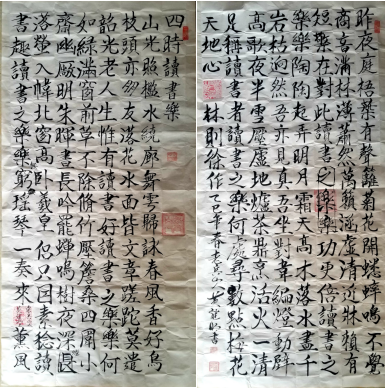 四時讀書樂
山光照檻水繞廊舞雩歸詠春風香好鳥
枝頭亦朋友落花水面皆文章蹉跎莫遣
韶光老人生惟有讀書好讀書之樂樂何
如綠滿窗前草不除修竹壓簷桑四圍小
齋幽敞明朱曦晝長吟罷蟬鳴樹夜深
落螢入幃北窗高臥羲皇侶只因素稔讀
書趣讀書之樂樂窮瑤琴一奏來薰風
昨夜庭梧有聲籬菊花開蟋蟀鳴不覺
商意滿林薄蕭然萬籟涵虛清近牀賴有
短檠在對此讀書之樂功更倍讀書之
樂樂陶陶起弄明月霜天高木落水盡千
岩枯迥然吾亦見真吾坐對韋編燈動壁
高歌夜半雪壓廬地爐茶鼎烹活火一清
足稱讀書者讀書之樂何處尋數點梅花
天地心 林則徐作